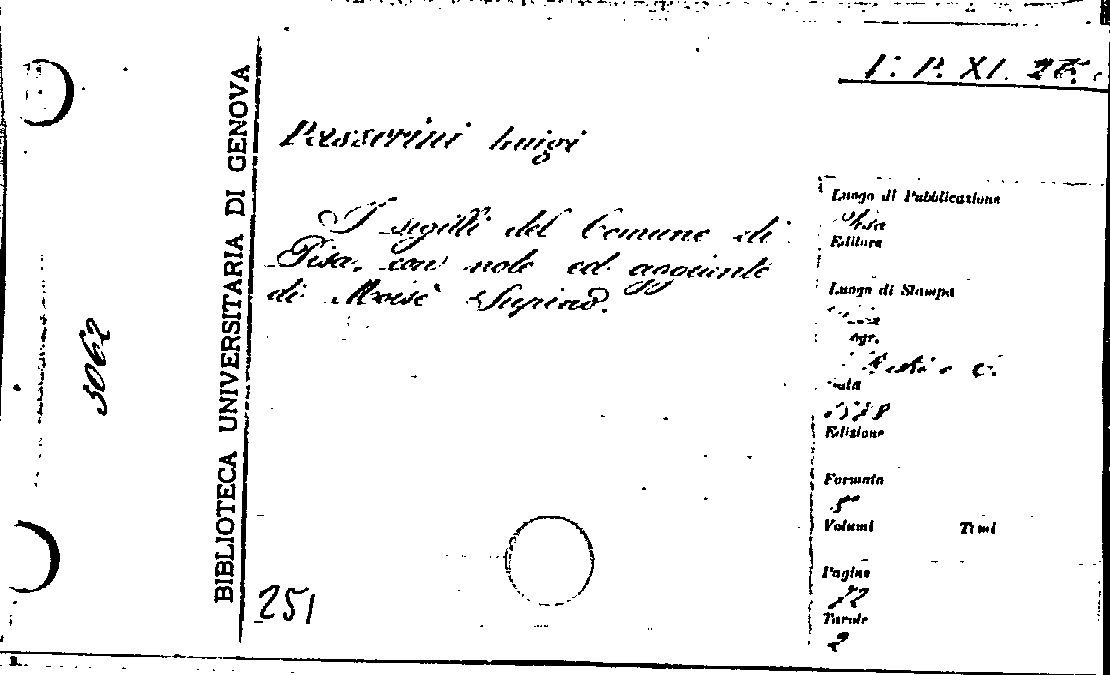 BIBLIOTECA UNIVERSITARIA DI GENOVA
3062
Passerini Luigi
I sigilli del Comune di
Pisa, con note ed aggiunte
di Moisè Supino.
251
Luogo di Pubblicazione
Pisa
Editore
Luogo di Stampa
Data
1878
Edizione
Formato
8°
Volumi Tomi
Pagine
12
Tavole
2